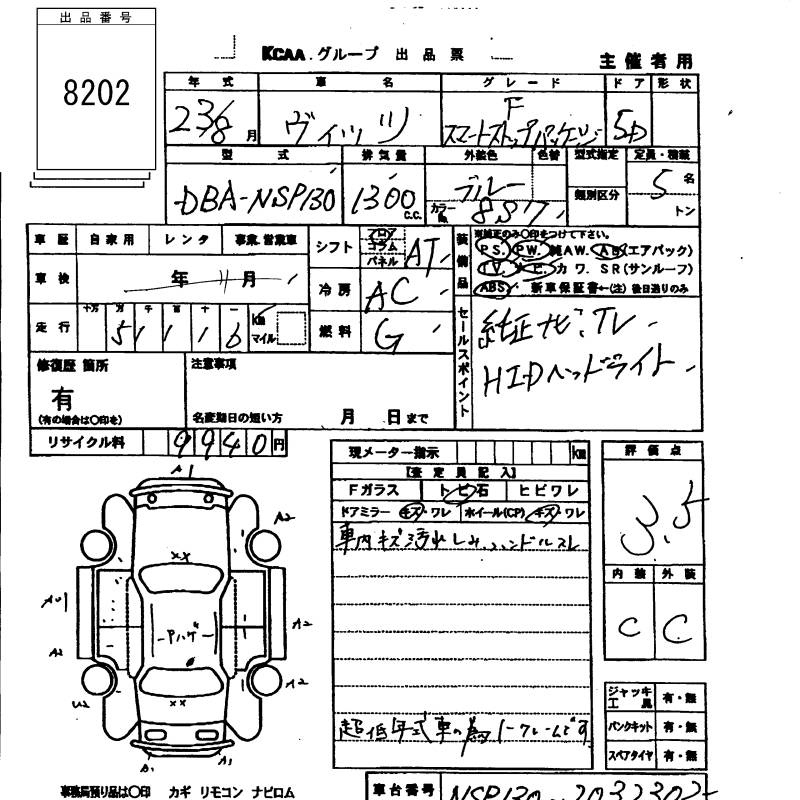 出品番号
8202
KCAA グループ 出品票
主催者用
年式 車名 グレード ドア 形状
23/8月 ヴィッツ F スマートストップパッケージ 5D
型式 排気量 外装色 色替 型式指定 定員・積載
DBA-NSP130 1300 C.C. ブルー カラーNo. 8S7 類別区分 5名 トン
車歴 自家用 レンタ 事業.営業車
シフト フロア コラム パネル AT
車検 年 11月
冷房 AC
走行 十万 万 千 百 十 一 51116 km マイル
燃料 G
装備品 ※純正のみ〇印をつけて下さい。
PS. PW. 純AW. AB(エアバック)
TV. ナビ. カワ. SR(サンルーフ)
ABS 新車保証書←(注)後日送りのみ
セールスポイント
純正ナビ、TV
HIDヘッドライト
修復歴 箇所
有
(有の場合は〇印を)
注意事項
名変期日の短い方 月 日まで
リサイクル料 9940円
現メーター指示 km
【査定員記入】
Fガラス トビ石 ヒビワレ
ドアミラー キズ・ワレ ホイール(CP) キズ・ワレ
車内キズ汚れしみ、ハンドルスレ
超低年式車の為ノークレームです
評価点
3.5
内装 外装
C C
A1
A2
A2
A2
A2
U2
A1
A1
ジャッキ工具 有・無
パンクキット 有・無
スペアタイヤ 有・無
事務局預り品は〇印 カギ リモコン ナビロム
車台番号 NSP130-2032302